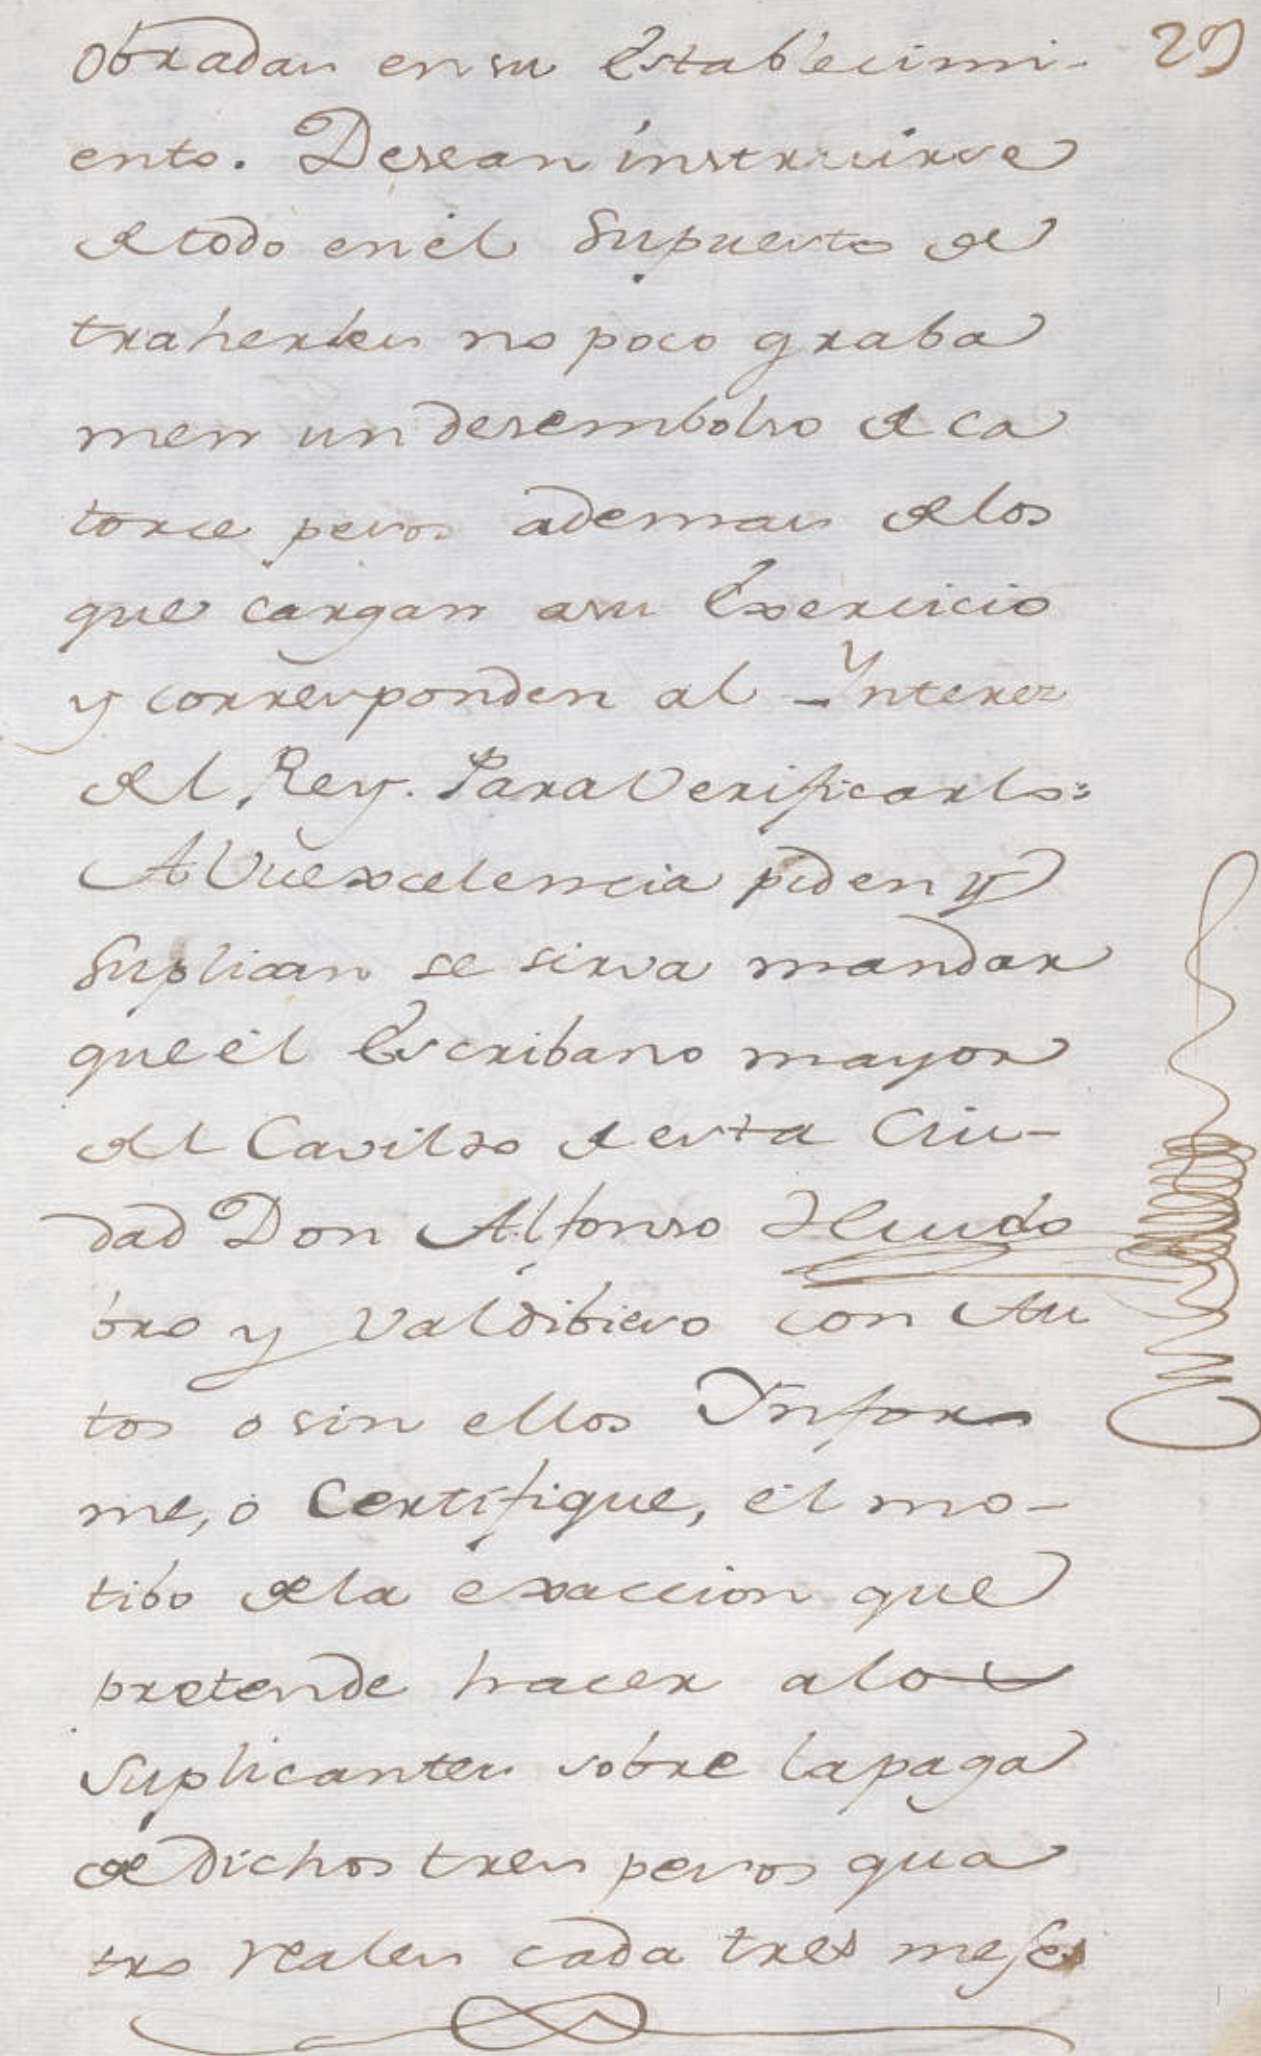 obradas en su Establecimi- 29
ento. Desean instruirse
de todo en él Supuesto de
traherles no poco graba
men un desembolso de ca
torce pesos ademas delos
que cargan asu Exercicio
y corresponden al Ynterez
del Rey. Para Verificarlo:
A Vuexcelencia piden y
Suplican se sirva mandar
que él Escribano mayor
del Cavildo de esta Ciu-
dad Don Alfonso
bro y Valdibieso con Au
tos o sin ellos Ynfor
me, o Certifique, él mo-
tibo dela exaccion que
pretende hacer alos
Suplicantes sobre lapaga
de dichos tres pesos qua
tro reales cada tres meses